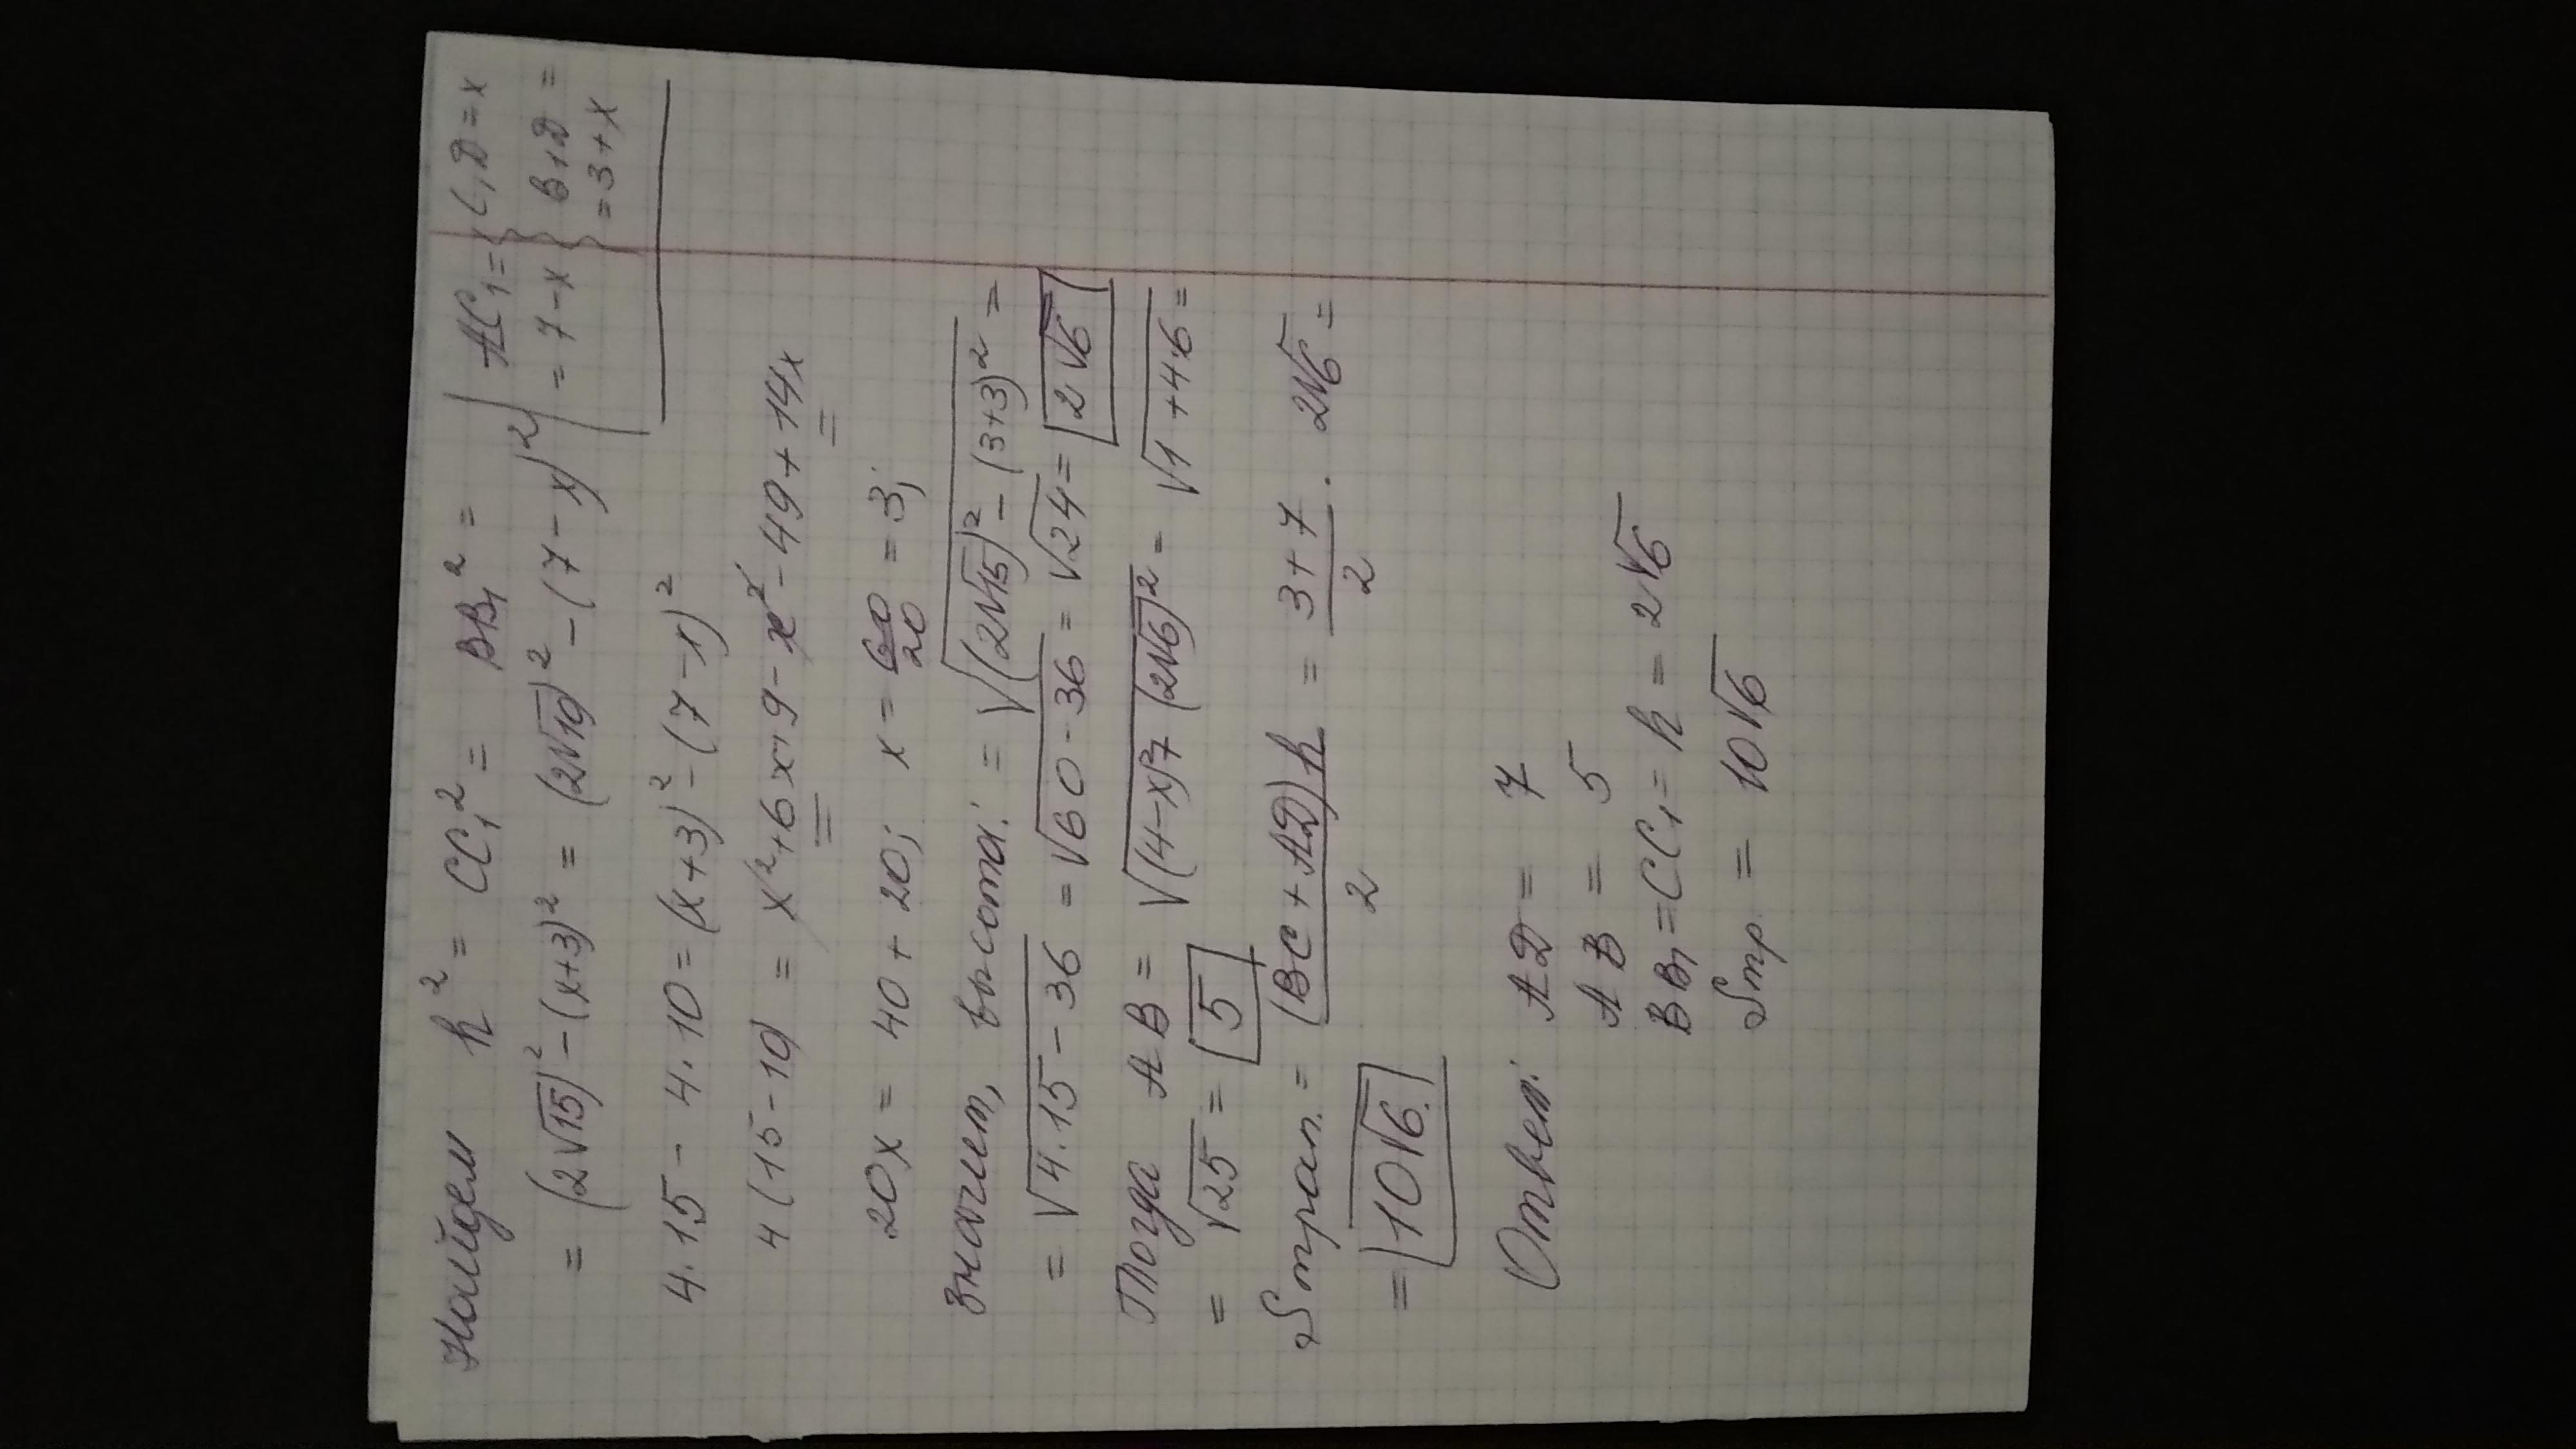 Найдем h² = CC₁² = BB₁² =
= (2√15)² - (x+3)² = (2√10)² - (7-x)²
AC₁ =
= 7-x
C₁D = x
B₁D =
= 3+x
4·15 - 4·10 = (x+3)² - (7-x)²
4(15-10) = x²+6x+9-x²-49+14x
20x = 40+20; x = 60/20 = 3;
Значит, высота: = √(2√15)² - (3+3)² =
= √4·15-36 = √60-36 = √24 = 2√6
Тогда AB = √(4-x)²+(2√6)² = √1+4·6 =
= √25 = 5
Sтрап. = (BC+AD)h/2 = 3+7/2 · 2√6 =
= 10√6.
Ответ: AD = 7
AB = 5
BB₁ = CC₁ = h = 2√6
Sтр. = 10√6